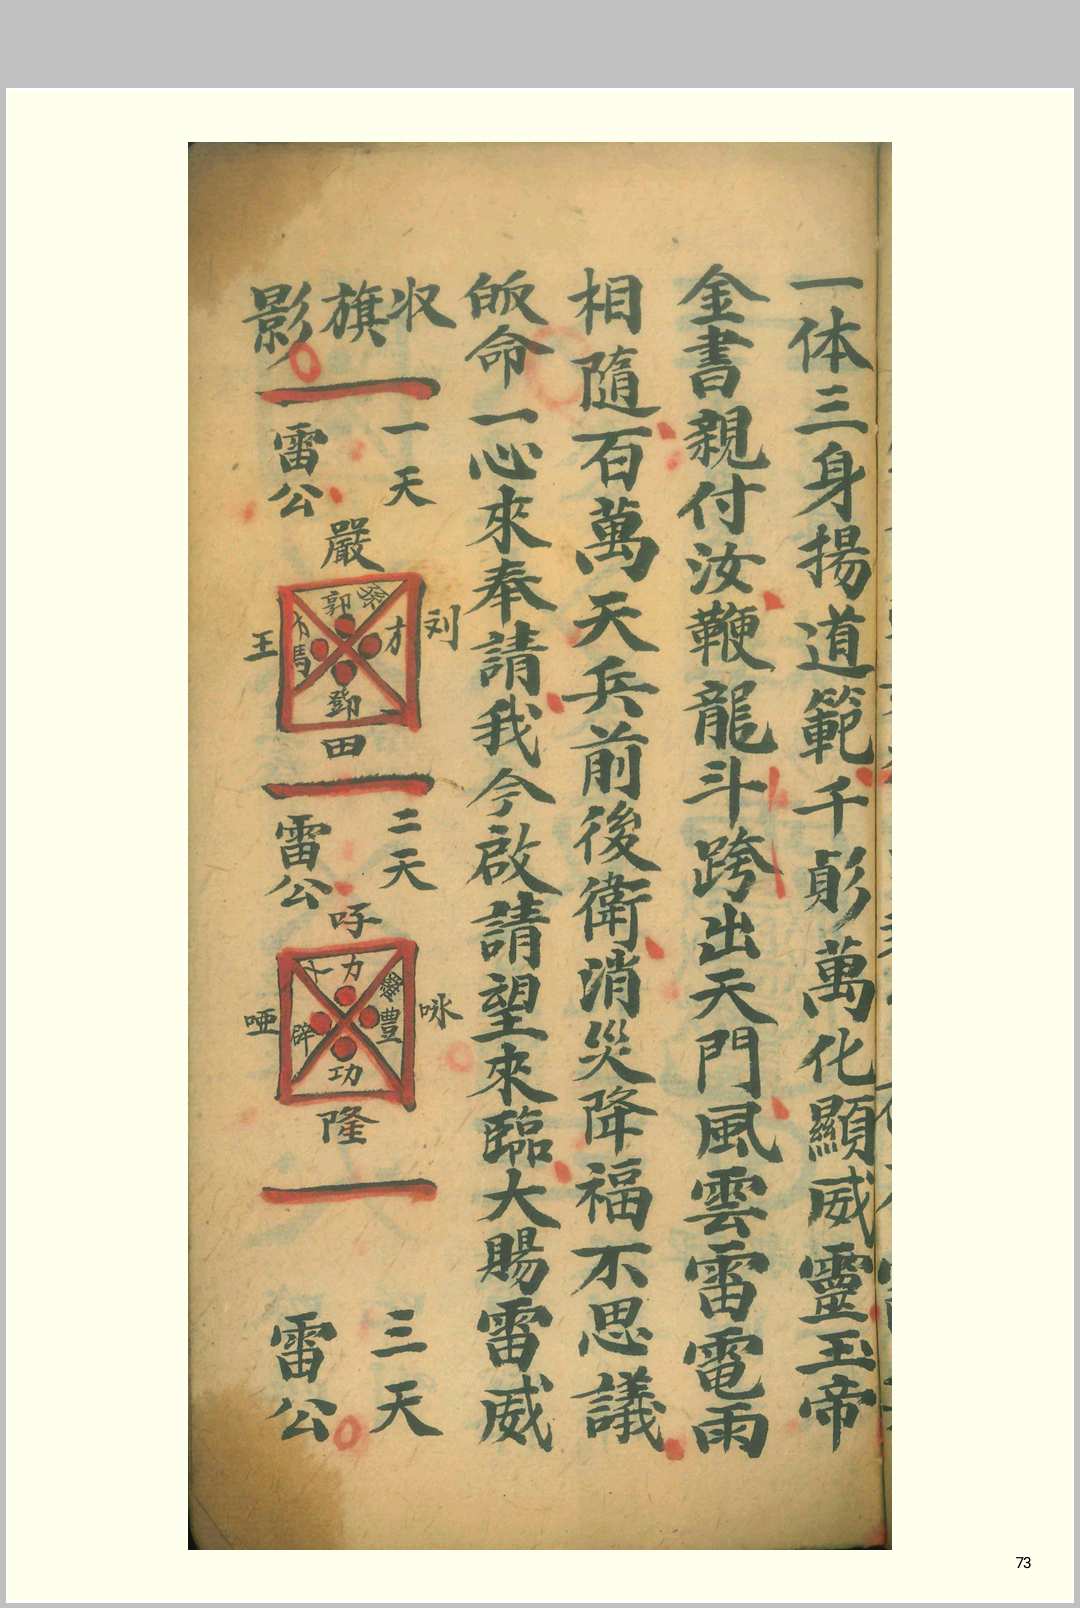 一体三身揚道範千𩲃萬化顯威靈玉帝
金書親付汝鞭龍斗跨出天門風雲雷電雨
相隨百萬天兵前後衛消災降福不思議
皈命一心來奉請我今啟請望來臨大賜雷威
收旗影
一天雷公
嚴
郭
刘
才
王
馬
鄧
田
二天雷公
吁
力
咏
豊
啞
辟
功
隆
三天雷公
73